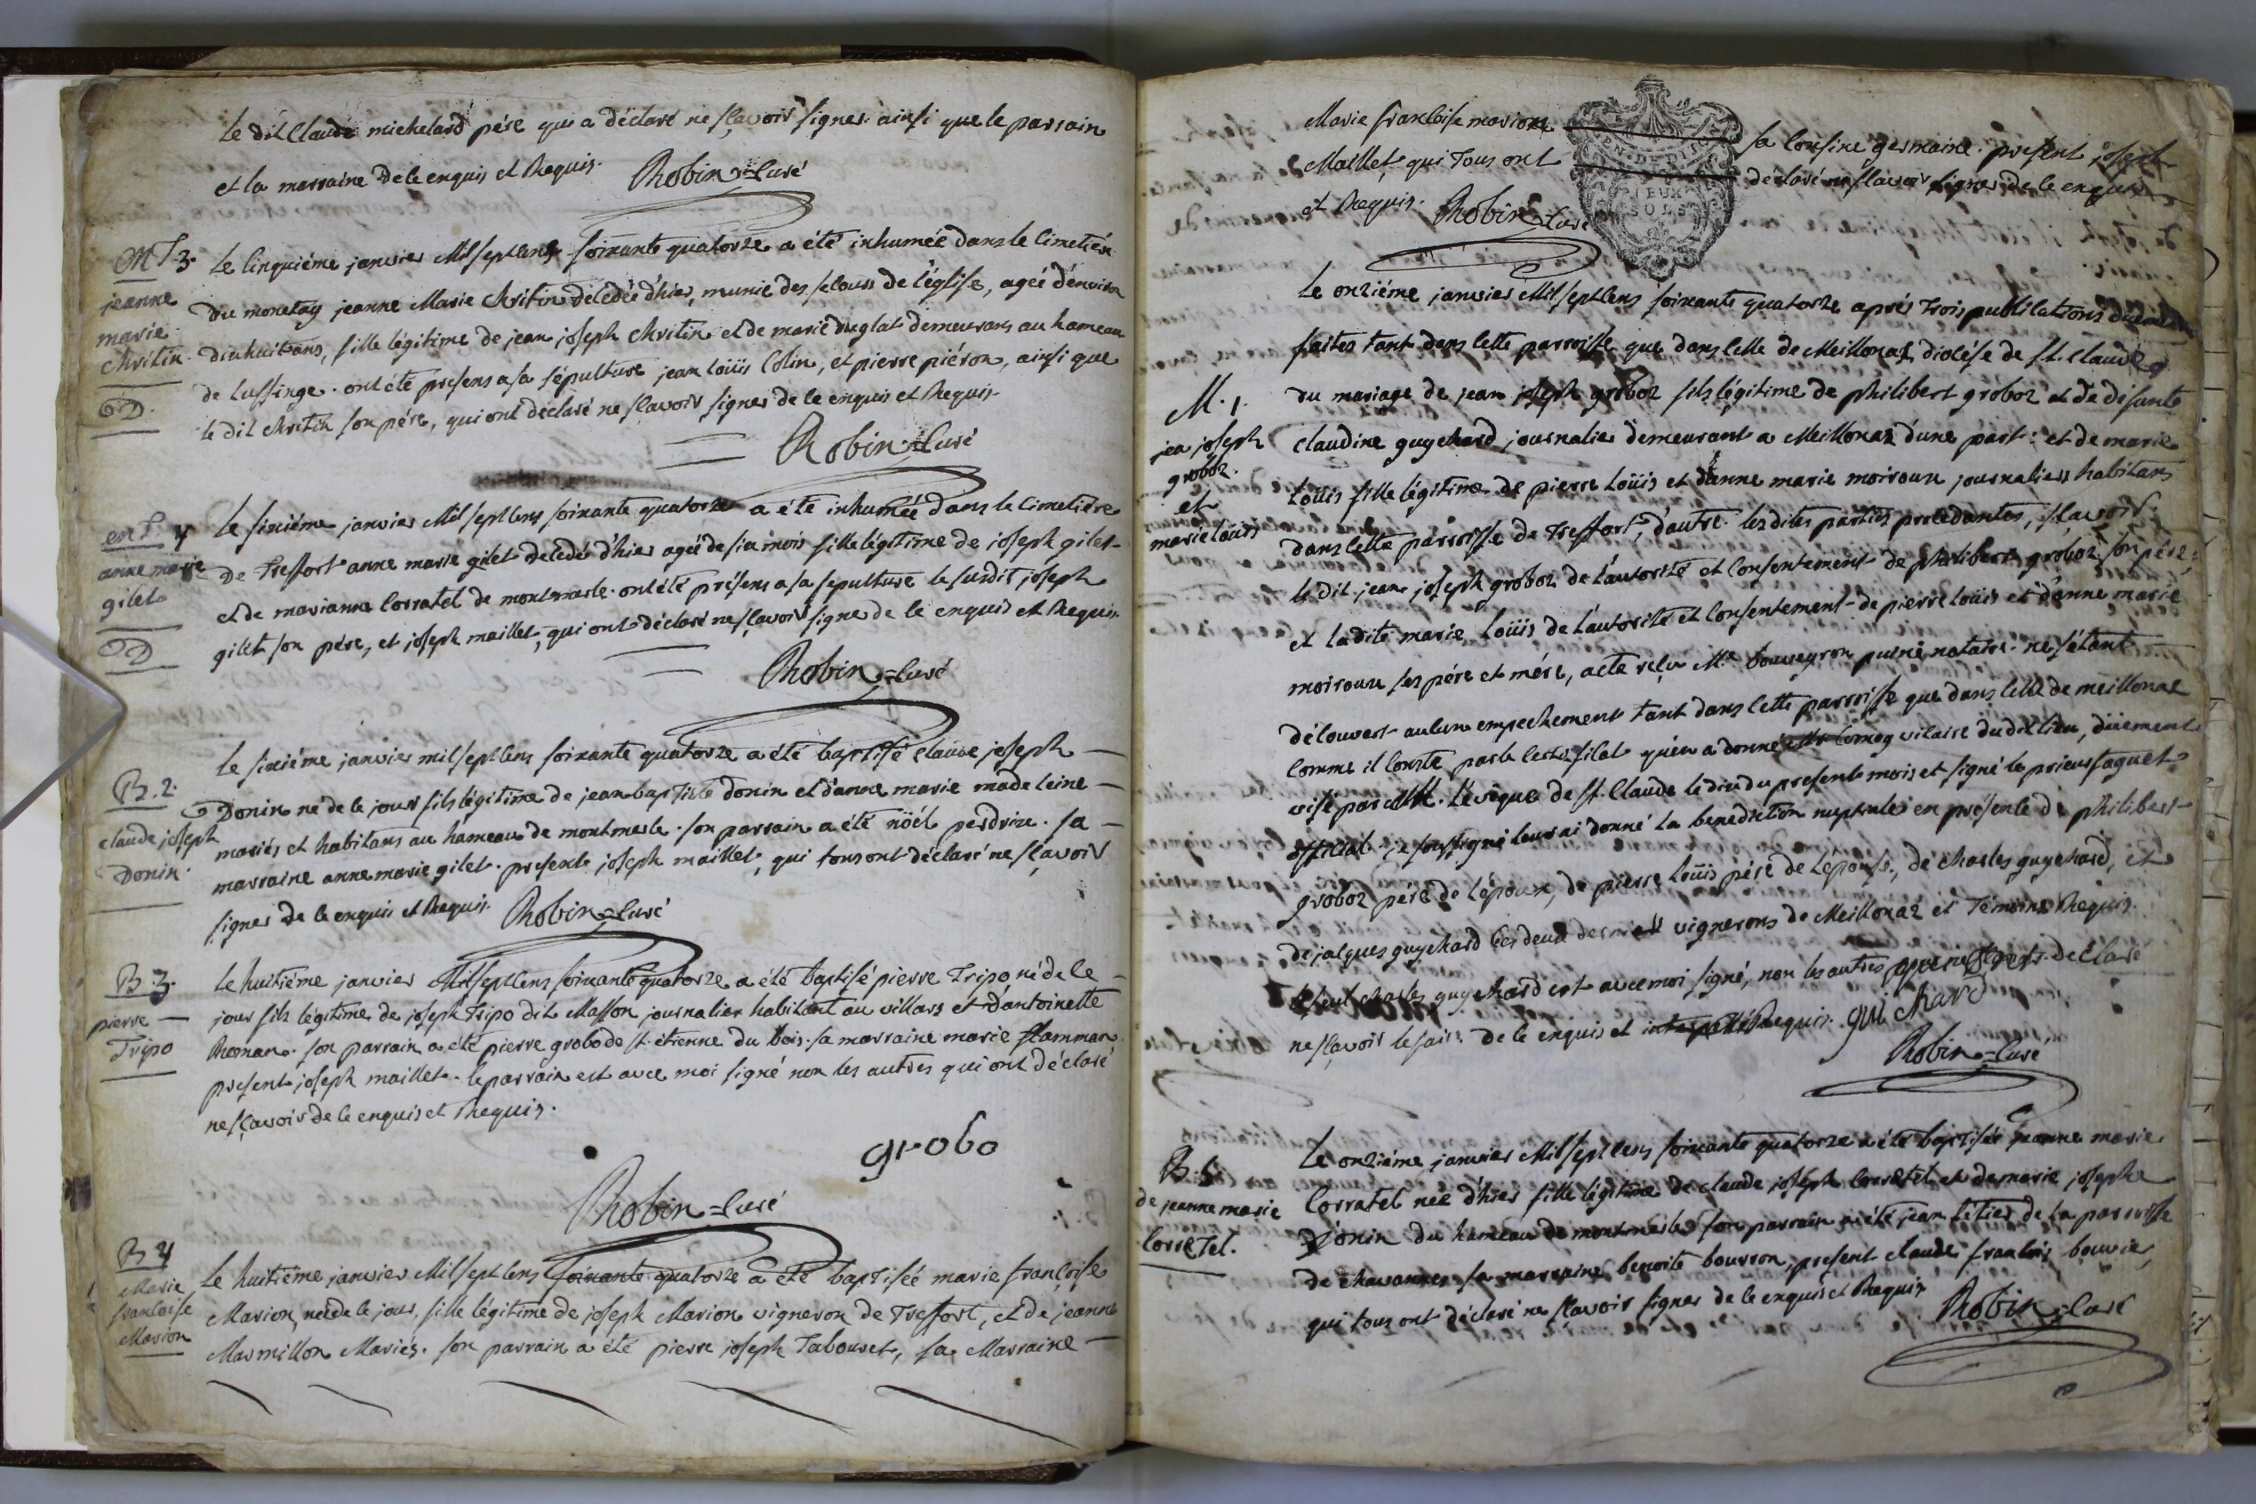 le dit Claude michelard pére qui a déclaré ne sçavoir signer ainsi que le parrain
et la marraine de ce enquis et Requis. Robin = Curé
MS 3.
jeanne
marie
chritin
D.
Le cinquiéme janvier Mil sept cens soixante quatorze a été inhumée dans le cimetiére
du monetay jeanne Marie chritin décédée d'hier, munie des secours de l'église, agée d'environ
dixhuit ans, fille légitime de jean joseph chritin et de marie duglat demeurans au hameau
de Lussinge. ont été presens a sa sépulture jean loüis Colin, et pierre piéron, ainsi que
le dit chritin son pére, qui ont déclaré ne sçavoir signer de ce enquis et Requis.
Robin = Curé
anne marie
gilet
D
Le sixiéme janvier Mil sept cens soixante quatorze a été inhumée dans le cimetiére
de Treffort anne marie gilet décédée d'hier agée de six mois fille légitime de joseph gilet
et de marianne Corratel de montmerle. ont été présens a sa sepulture le susdit joseph
gilet son pére, et joseph maillet, qui ont déclaré ne sçavoir signer de ce enquis et Requis.
Robin = Curé
B. 2.
claude joseph
Donin.
Le sixiéme janvier mil sept cens soixante quatorze a été baptisé claude joseph
Donin né de ce jour fils légitime de jean baptiste donin et d'anne marie madeleine
mariés et habitans au hameau de montmerle. son parrain a été nöël perdrix. sa
marraine anne marie gilet. present joseph maillet, qui tous ont déclaré ne sçavoir
signer de ce enquis et Requis. Robin = Curé
B. 3.
pierre
Tripo
Le huitiéme janvier Mil sept cens soixante quatorze a été baptisé pierre Tripo, né de ce
jour fils légitime de joseph Tripo dit Masson journalier habitant au villars et d'antoinette
Roman. son parrain a été pierre grobo de st. étienne du bois. sa marraine marie flamman.
present joseph maillet. le parrain est avec moi signé non les autres qui ont déclaré
ne sçavoir de ce enquis et Requis.
grobo
Robin = Curé
B 4
Marie
francoise
Marion
Le huitiéme janvier Mil sept cens soixante quatorze a été baptisée marie françoise
Marion, née de ce jour, fille légitime de joseph Marion vigneron de Treffort, et de jeanne
Marmillon Mariés. son parrain a été pierre joseph Tabouret, sa Marraine
Marie francoise marion sa cousine germaine. present joseph
Maillet, qui Tous ont déclaré ne sçavoir signer de ce enquis
et Requis. Robin = Curé
DEUX
SOLS
M. 1.
jea joseph
groboz
et
marie loüis
Le onziéme janvier Mil sept cens soixante quatorze aprés Trois publications
faites tant dans cette parroisse que dans celle de Meillonaz diocése de st. Claude
du mariage de jean joseph groboz fils légitime de philibert groboz et de défunte
claudine guychard journalier demeurant a Meillonaz d'une part: et de marie
Loüis fille légitime de pierre Loüis et d'anne marie moiroux journaliers habitans
dans cette parroisse de Treffort, d'autre. lesdites parties procédantes, sçavoir.
le dit jean joseph groboz de l'autorité et consentement de philibert groboz son pére;
et ladite marie Loüis de l'autorité et consentement de pierre Loüis et d'anne marie
moiroux ses pére et mére, acte reçu Me. bouveyron puiné notaire. ne s'étant
découvert aucun empechement tant dans cette parroisse que dans celle de meillonaz
comme il conste par le certificat qu'en a donné Mr Comoy vicaire dudit lieu, düement
visé par Mr. L'évêque de st. Claude le dix du present mois et signé le prieur faguet
official. je soussigné leur ai donné la benediction nuptiale en présence de philibert
groboz pére de l'époux, de pierre Loüis pére de L'épouse, de charles guychard, et
de jacques guychard les deux derniers vignerons de Meillonaz et Témoins Requis.
le seul charles guychard est avec moi signé, non les autres declaré
ne sçavoir le faire de ce enquis et Requis. gui chard
Robin = Curé
B. 5
de jeanne marie
CorreTel.
Le onziéme janvier Mil sept cens soixante quatorze a été baptisée jeanne marie
Corratel née d'hier fille légitime de claude joseph Corratel et de marie josephe
Donin du hameau de montmerle. son parrain a été jean létier de la parroisse
de chavannes. sa marraine benoite bourron, present claude francois bouvier
qui tous ont déclaré ne sçavoir signer de ce enquis et Requis
Robin = Curé